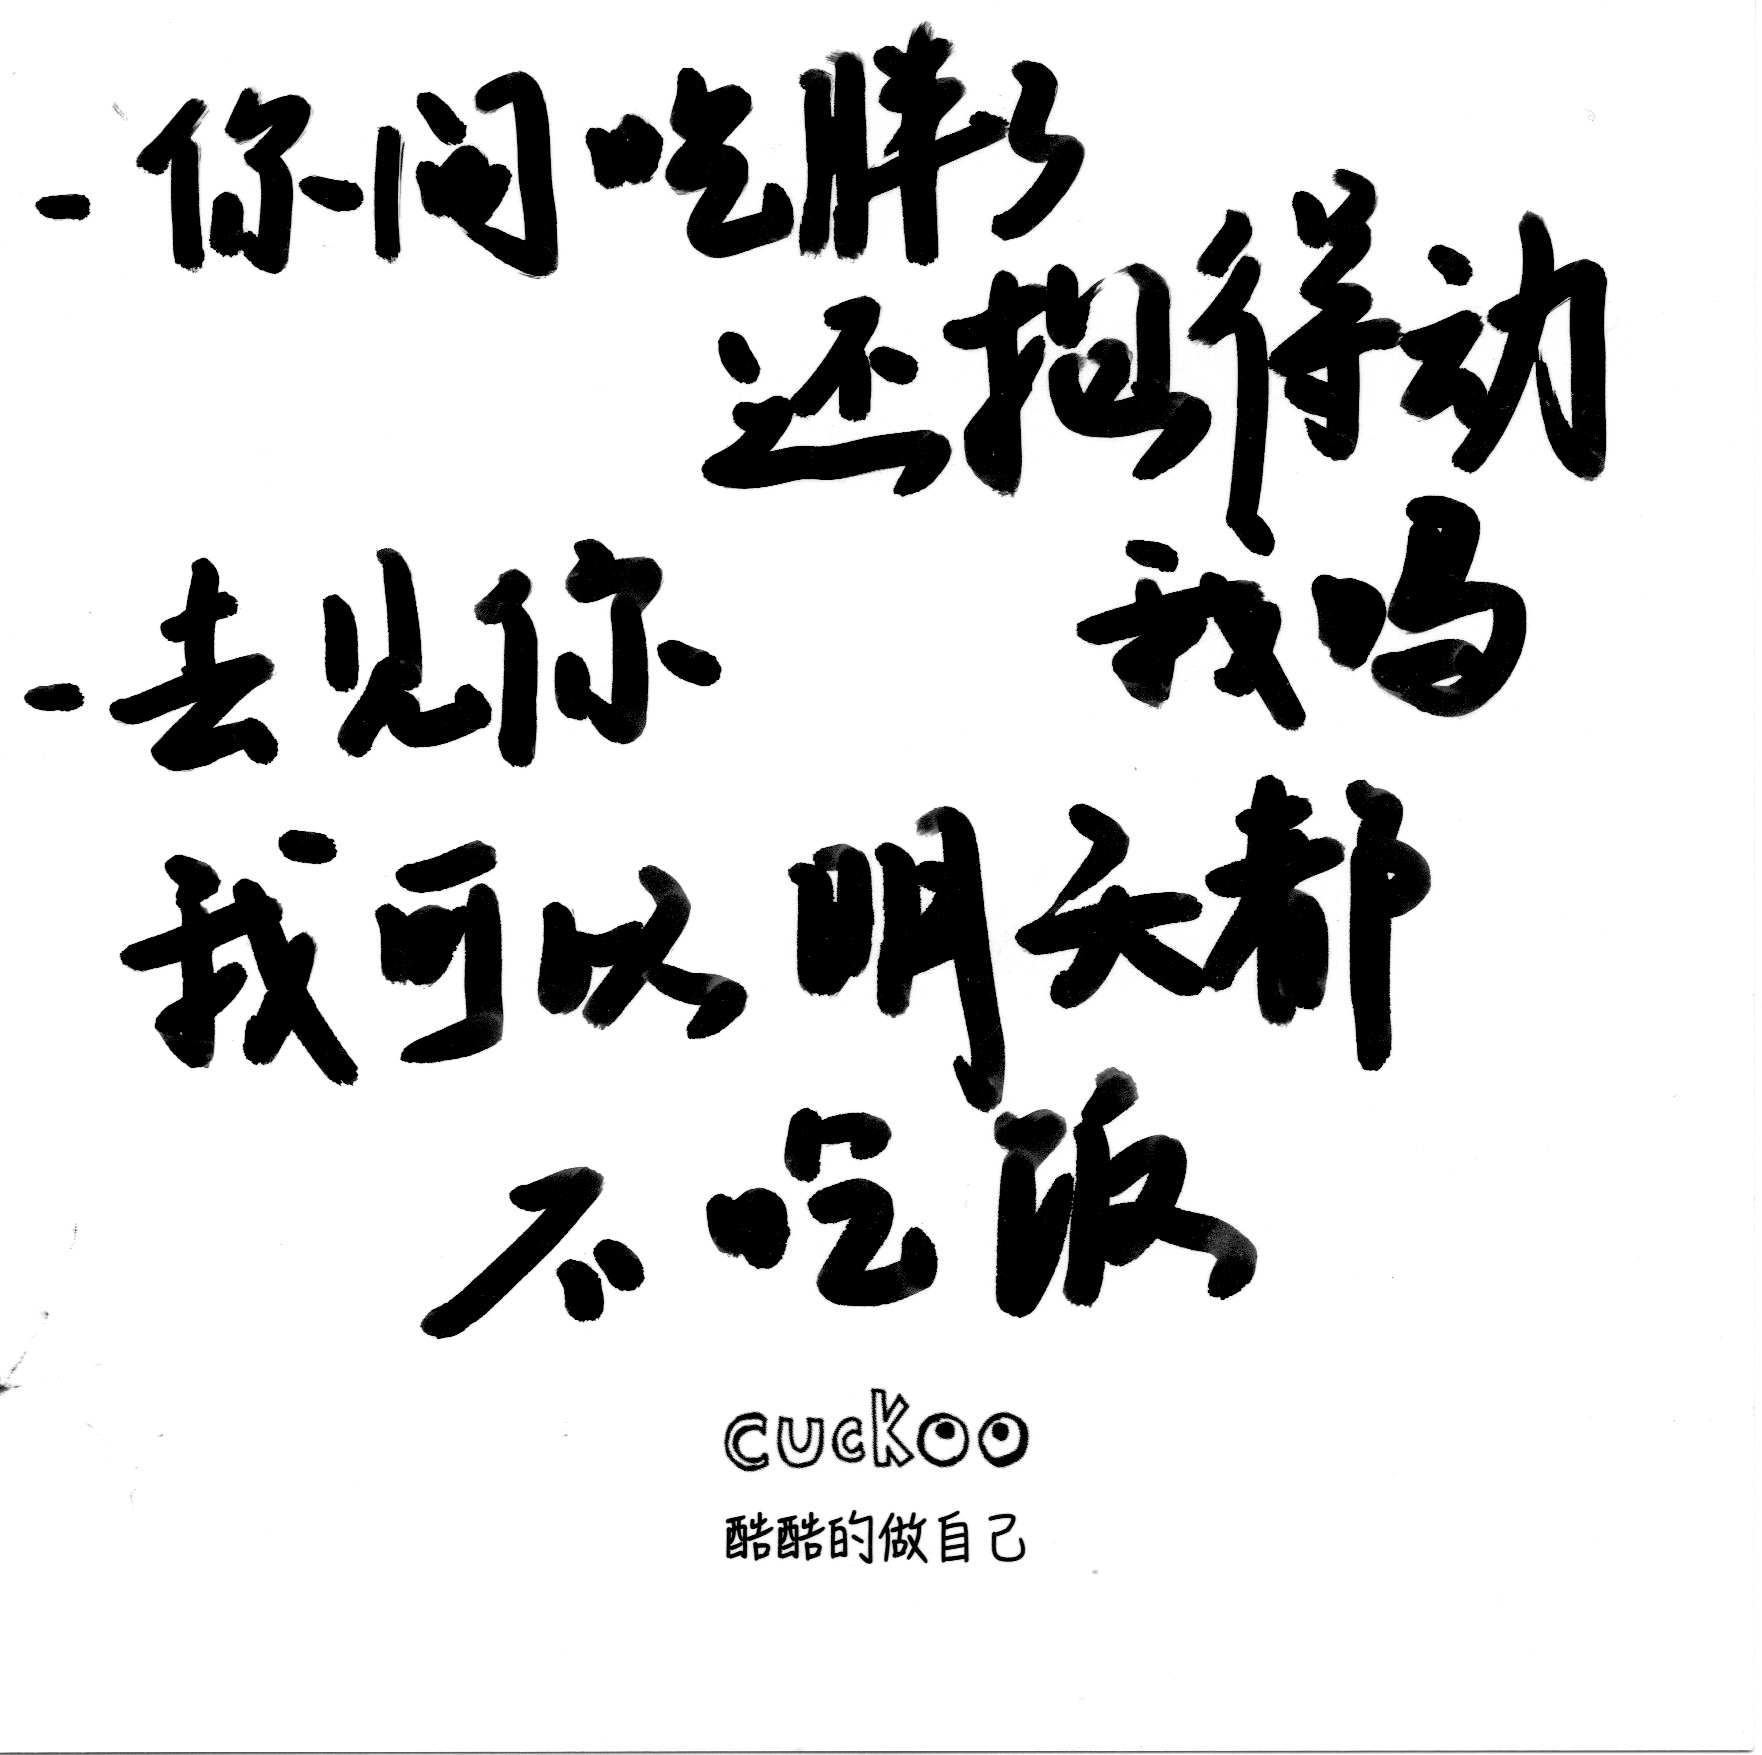 -你问吃胖了
还抱得动
我吗
-去见你
我可以明天都
不吃饭
cuckoo
酷酷的做自己